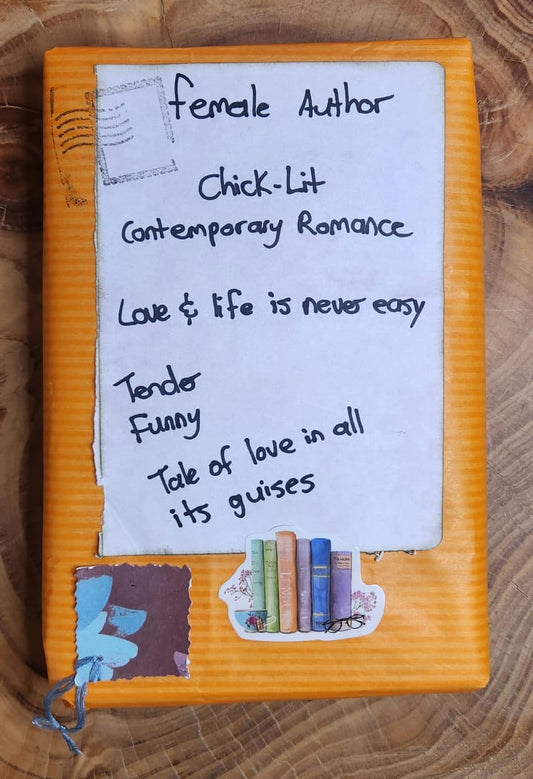 Female Author
Chick-Lit
Contemporary Romance
Love & life is never easy
Tender
Funny
Tale of love in all
its guises